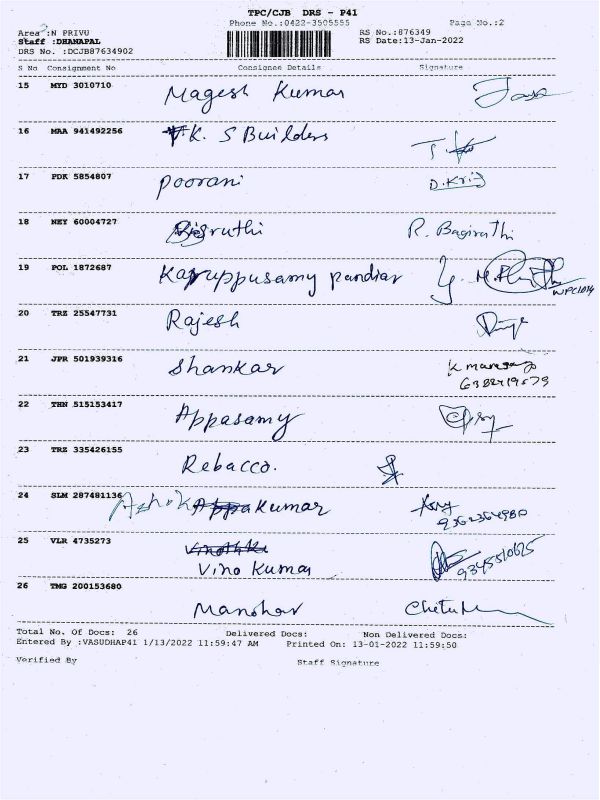 TPC/CJB DRS - P41
Phone No.:0422-3505555 Page No.:2
Area :N PRIVU RS No.:876349
Staff :DHANAPAL RS Date:13-Jan-2022
DRS No. :DCJB87634902
S No Consignment No Consignee Details Signature
15 MYD 3010710 Magesh Kumar
16 MAA 941492256 V.K. S Builders
17 PDK 5854807 Poorani D.Krij
18 NEY 60004727 R. Bagirathi
19 POL 1872687 Karuppusamy Pandiar
20 TRZ 25547731 Rajesh
21 JPR 501939316 Shankar
22 THN 515153417 Appasamy
23 TRZ 335426155 Rebacco.
24 SLM 287481136 Ashok Kumar
9362364980
25 VLR 4735273
Vino Kumar 9345510625
26 TMG 200153680 Manohar
Total No. Of Docs: 26 Delivered Docs: Non Delivered Docs:
Entered By :VASUDHAP41 1/13/2022 11:59:47 AM Printed On: 13-01-2022 11:59:50
Verified By Staff Signature